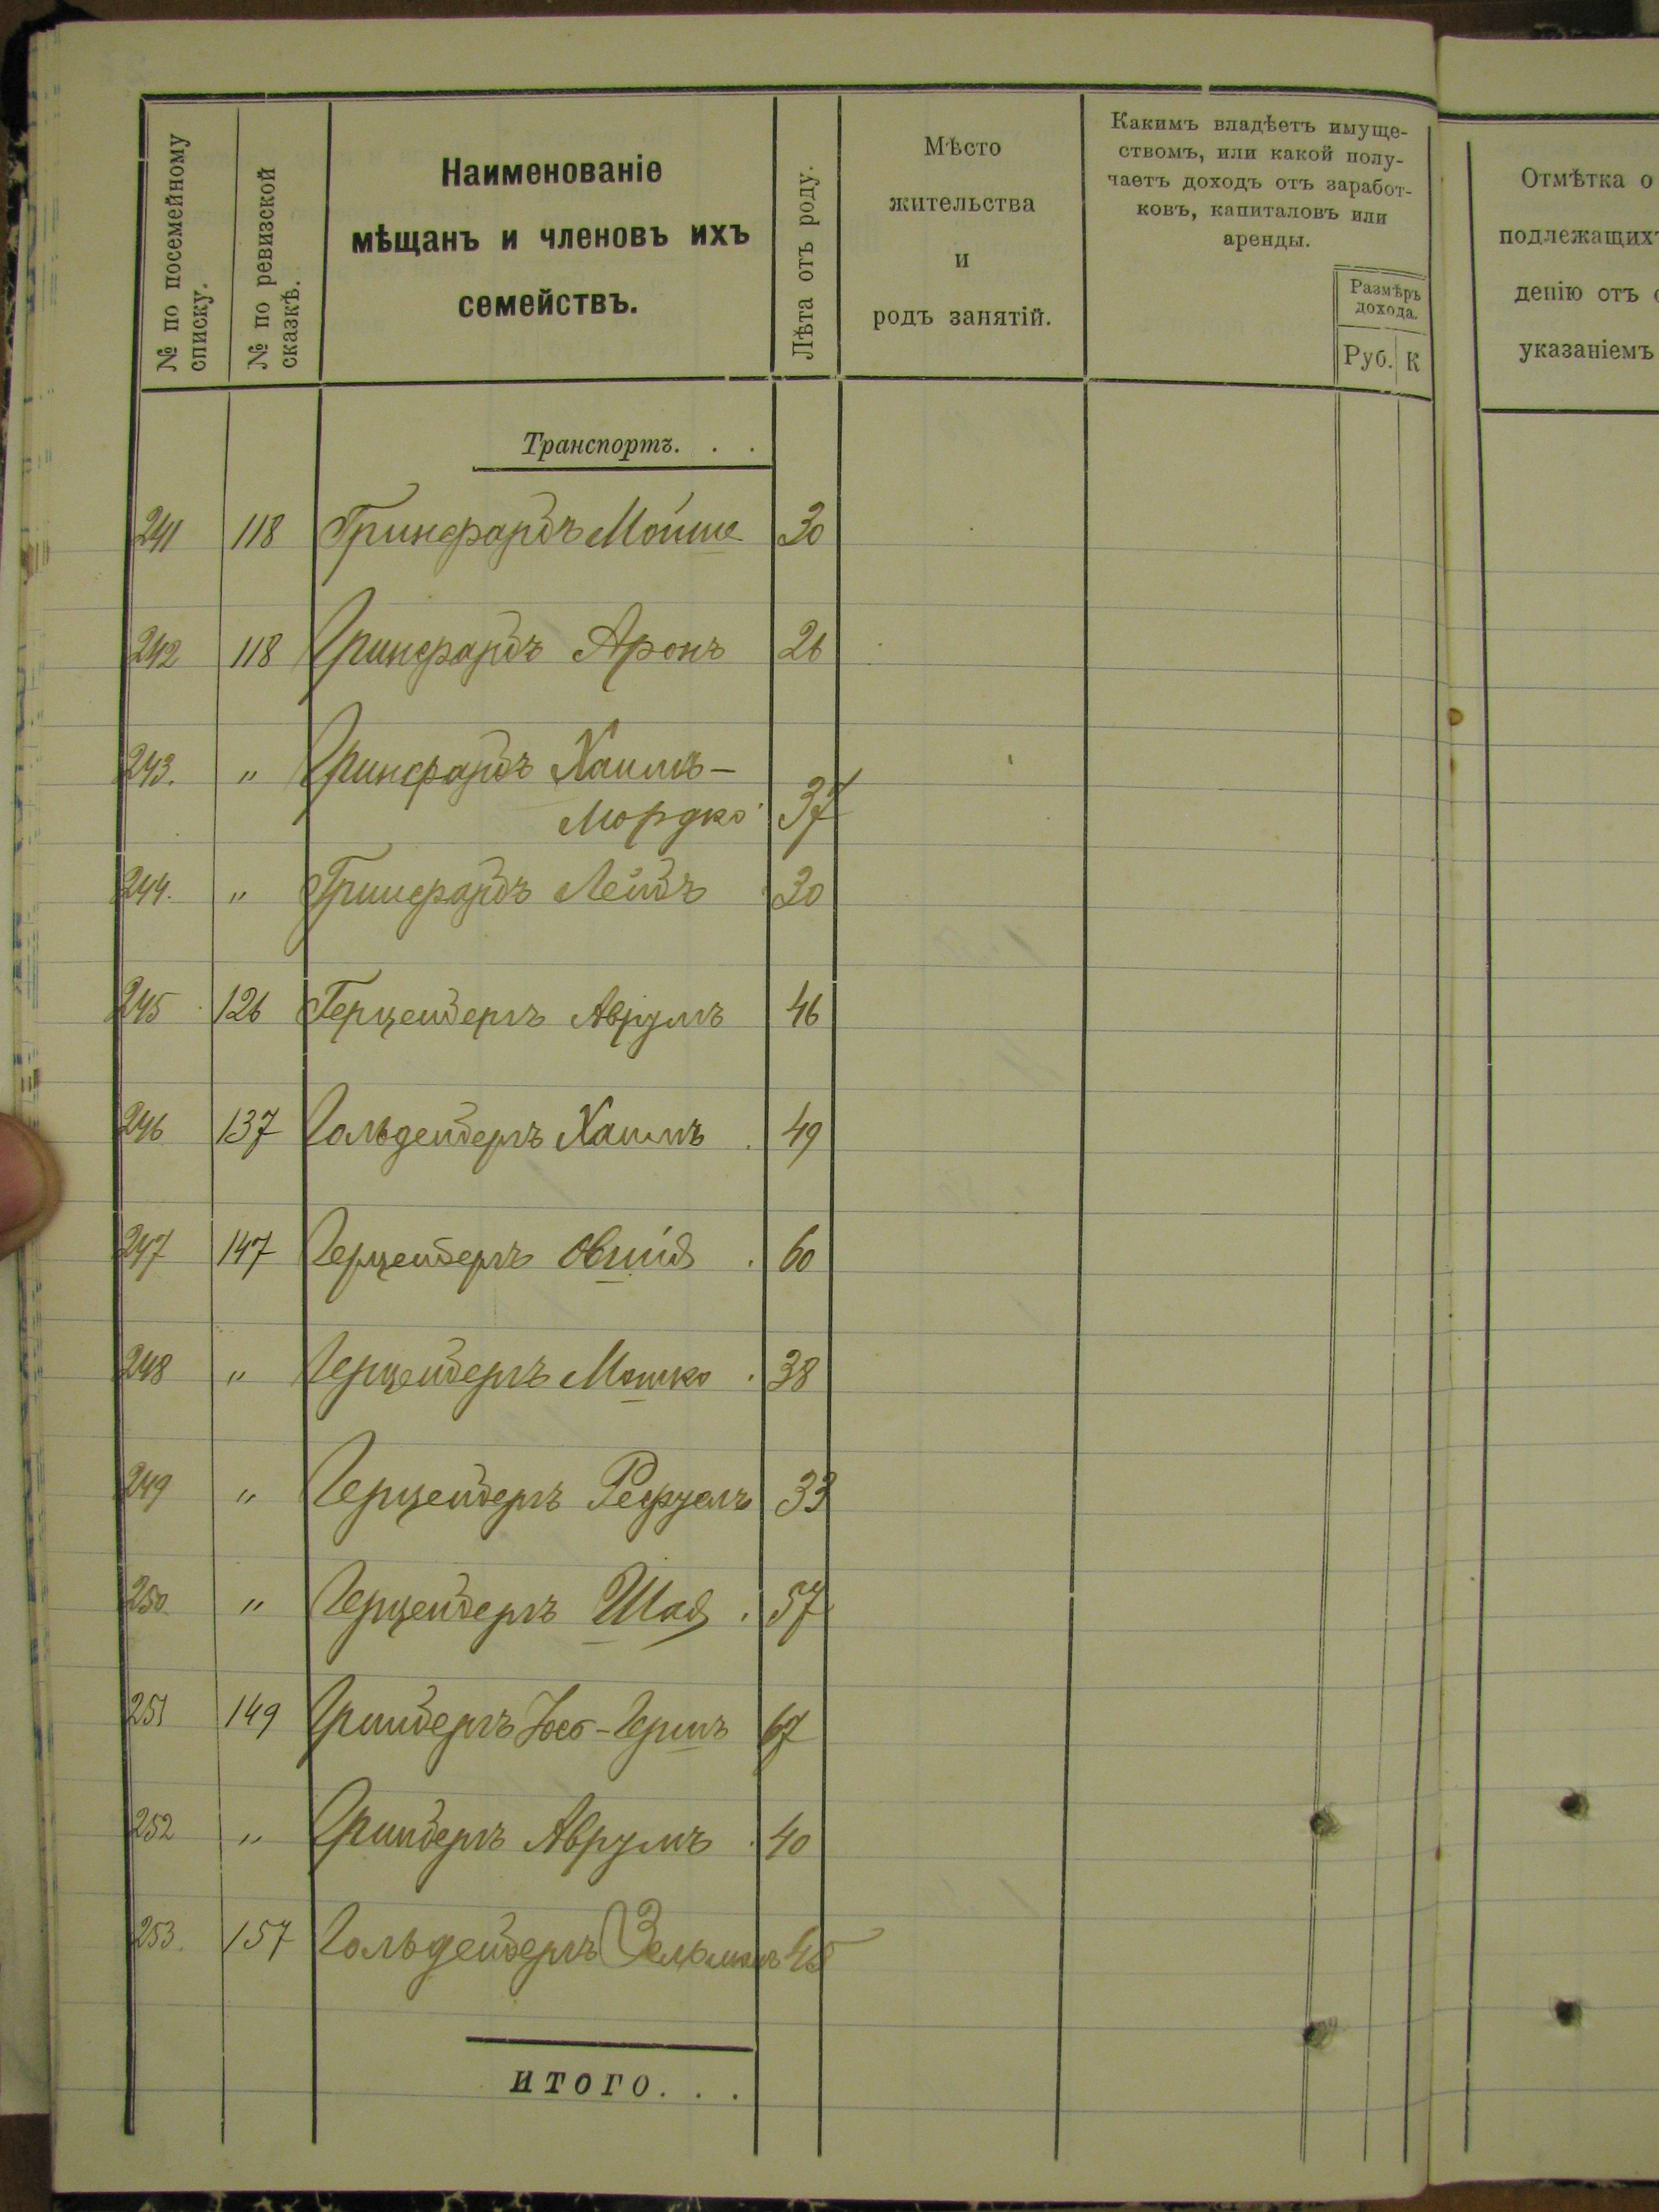 № по посемейному списку.
№ по ревизской сказкѣ.
Наименованіе
мѣщанъ и членовъ ихъ
семействъ.
Лѣта отъ роду.
Мѣсто
жительства
и
родъ занятій.
Какимъ владѣетъ имуще-
ствомъ, или какой полу-
чаетъ доходъ отъ заработ-
ковъ, капиталовъ или
аренды.
Размѣръ
дохода.
Руб. К
Отмѣтка о
подлежащихъ
денію отъ
указаніемъ
Транспортъ. . .
241 118 Гринфарбъ Мойше 30
242 118 Гринфарбъ Аронъ 26
243. " Гринфарбъ Хаимъ-
Мордко 37
244. " Гринфарбъ Лейбъ 30
245 126 Герценбергъ Аврумъ 46
246 137 Гольденбергъ Хаимъ 49
247 147 Герценбергъ 60
248 " Герценбергъ Мошко 38
249 " Герценбергъ Рефуелъ 33
250 " Герценбергъ 57
251 149 Гринбергъ Іос-Гершъ 67
252 " Гринбергъ Аврумъ 40
253. 157 Гольденбергъ Зельманъ
ИТОГО. . .